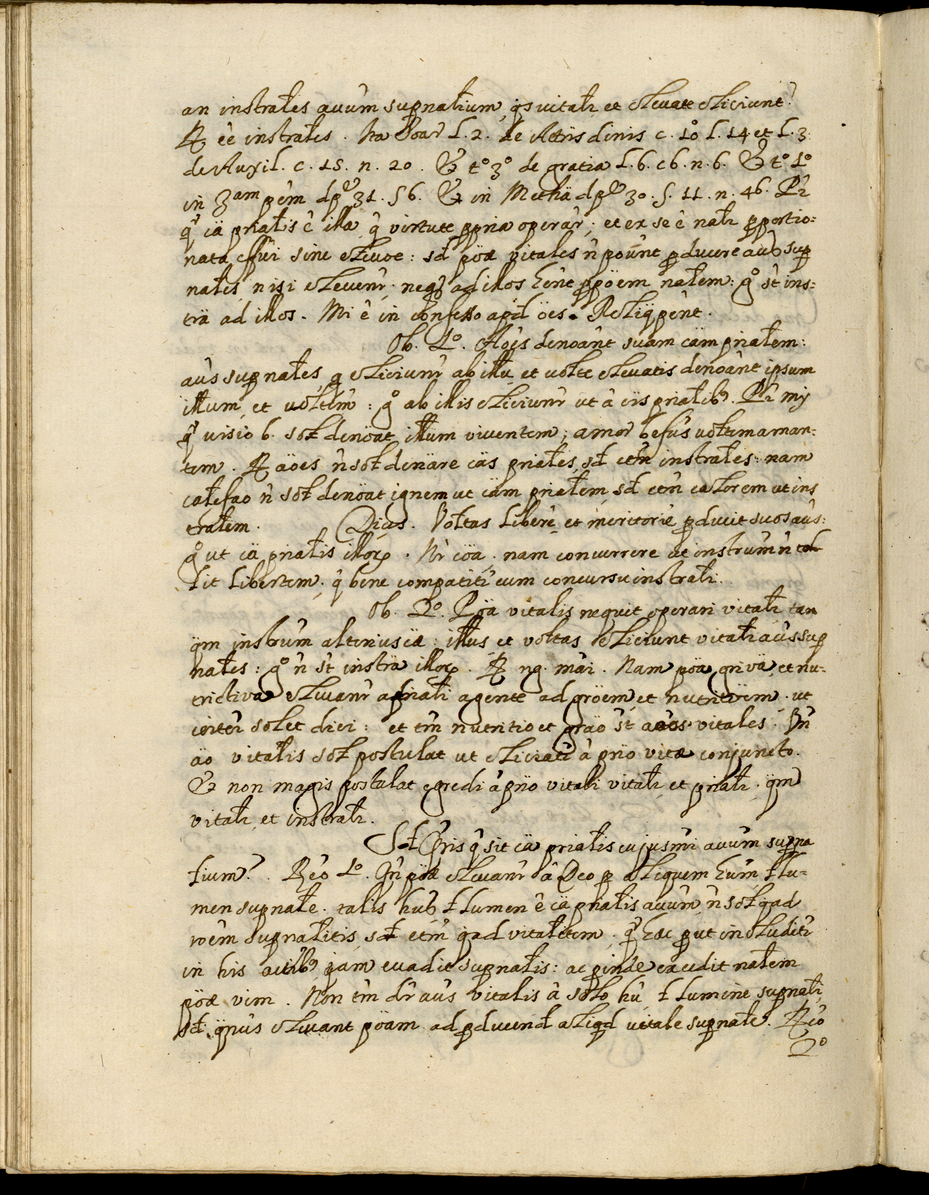 an instrales auum supnatium, qs vitalr et eleuate eliciunt?
R ee instrales. Ita Soar l. 2. de Attris diuis c. 10 l. 14 et l. 3.
de Auxil. c. 15. n. 20. & to 3o de gratia l. 6. c 6. n. 6. & to 1o
in 3am pem dpe 31. § 6. & in Metha dpe 30. §. 11. n. 46. Pr
q ca prialis e illa q virtute ppria operar, et ex se e natr pportio:
nata effui sine eleuoe: sd poae vitales n pount pducere aus sup
nales nisi eleuenr neq ad illos hent ppoem natem: go st ins:
tra ad illos. Mi e in confesso apd oes.
Ob. 1o. Aoes denoant suam cam prialem:
aus supnales q eliciunr ab illu et uolte eleuatis denoant ipsum
illum, et uoltem: go ab illis eliciunr ut a cis prialibs. Pr mi
q uisio b. sol denoat illum viuentem; amor befus uoltem aman:
tem. R aoes n sol denare cas priales, sd etm instrales: nam
calefao n sol denoat ignem ut cam prialem sd etm calorem ut ins
tralem. Dices. Voltas libere et meritorie pducit suos aus:
go ut ca prialis illorp. Nr coa. nam concurrere ut instrum n tol
lit libertem. q bene compatitr cum concursu instrali.
Ob. 2o. Poa vitalis nequit operari vitalr tan
qm instrum alterius ca: illus et voltas eliciunt vitalr aus sup
nales: go n st instra illorp. R ng. mai. Nam poa griua, et nu:
tritiva eleuanr a pnali agente ad groem et nutritiem. ut
coiter solet dici: et tm nutritio et grao st aus vitales. Vn
ao vitalis sol postulat ut eliciatr a prio vitae conjuncto.
& non magis postulat egredi a prio vitali vitalr et prialr. qm
vitalr et instralr.
Sd Qris q sit ca prialis cujusmi auum supna
lium? Reo 1o. Qn poae eleuanr a Deo p aliquem hum l lu:
men supnale. talis hub l lumen e ca prialis auum n sol qad
roem supnalitis, sd etm qad vitalitem. q haec put includitr
in his auibs jam euadit supnalis: ac pinde excedit natem
poae vim. Non tm dr aus vitalis a solo hu l lumine supnali,
sd qnus eleuant poam ad pducend aliqd vitale supnale. Reo
2o